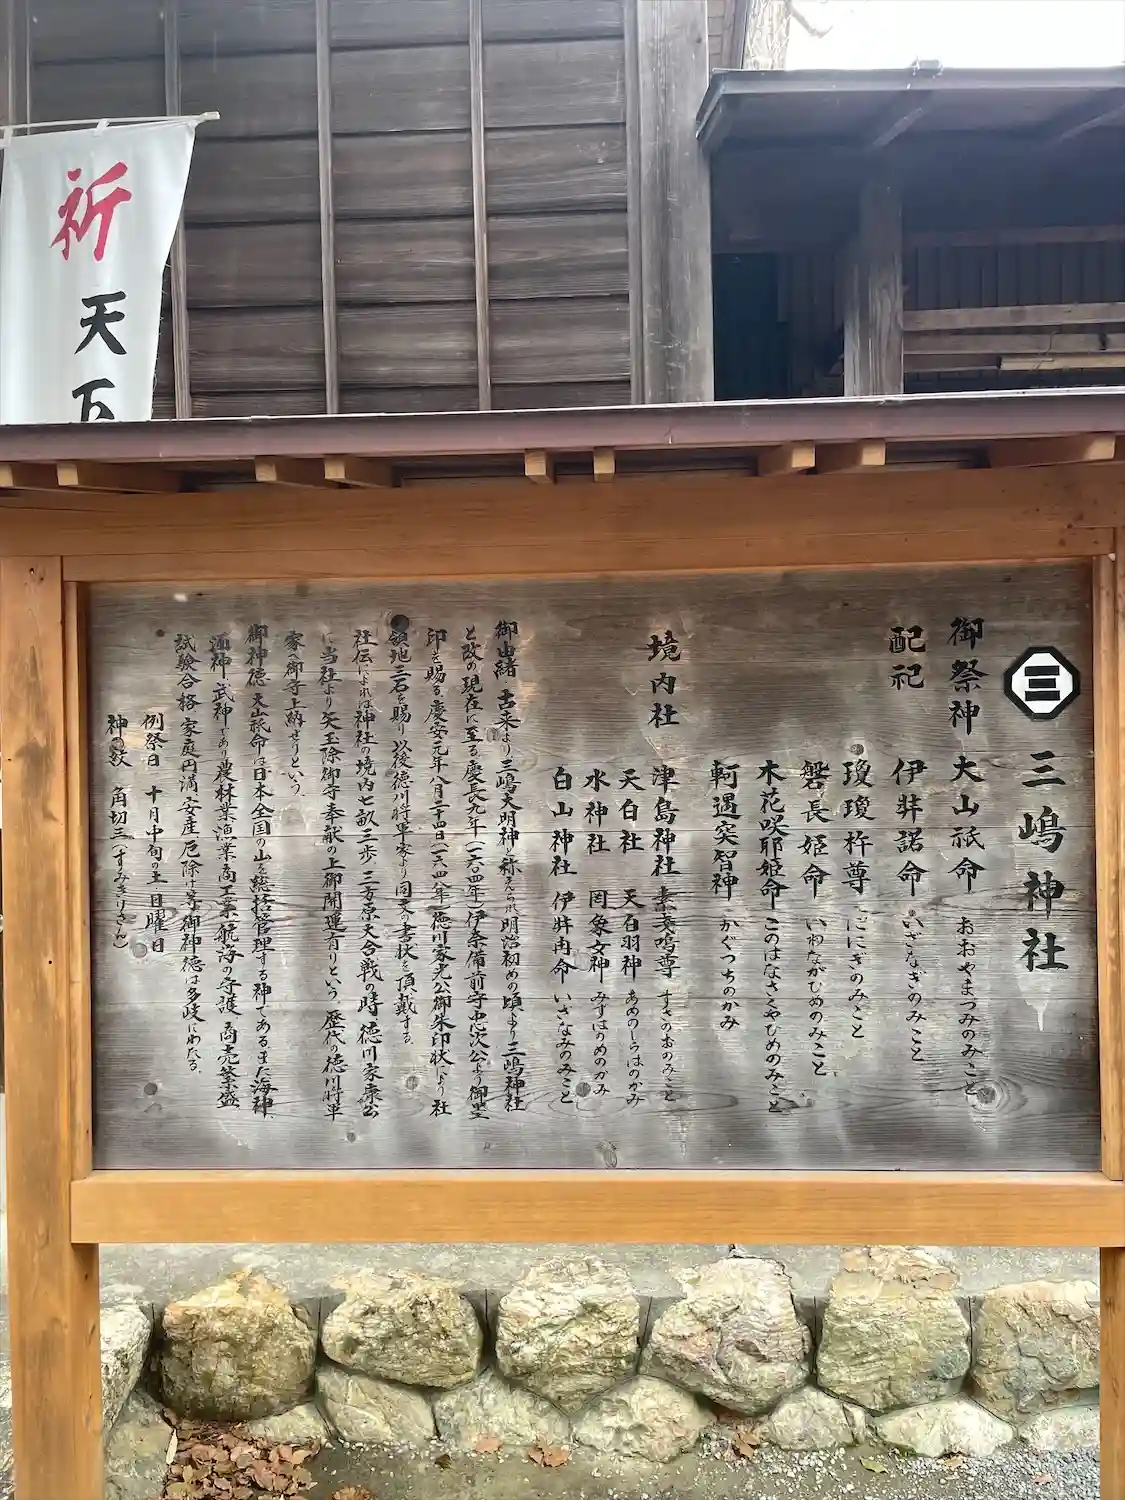 祈
天
三
三嶋神社
御祭神 大山祇命 おおやまつみのみこと
配祀 伊弉諾命 いざなぎのみこと
瓊瓊杵尊 ににぎのみこと
磐長姫命 いわながひめのみこと
木花咲耶姫命 このはなさくやひめのみこと
軻遇突智神 かぐつちのかみ
境内社 津島神社 素戔嗚尊 すさのおのみこと
天白社 天白羽神 あめのしらはのかみ
水神社 罔象女神 みずはのめのかみ
白山神社 伊弉冉命 いざなみのみこと
御由緒 古来より三嶋大明神と称えられ明治初めの頃より三嶋神社
と改め現在に至る。慶長九年(一六〇四年)伊奈備前守忠次公より御墨
印を賜る。慶安元年八月二十四日(一六四八年)徳川家光公御朱印状により社
領地三石を賜り以後徳川将軍家より同文の書状を頂戴する。
社伝によれば神社の境内七畝三歩、三方原大合戦の時徳川家康公
に当社より矢玉除御守奉献の上御開運有りという。歴代の徳川将軍
家へ御守上納せりという。
御神徳 大山祇命は日本全国の山を総括管理する神である。また海神、
酒神、武神であり農林業漁業商工業航海の守護 商売繁盛
試験合格 家庭円満 安産 厄除け等御神徳は多岐にわたる。
例祭日 十月中旬の土日曜日
神の紋 角切三(すみきりさん)